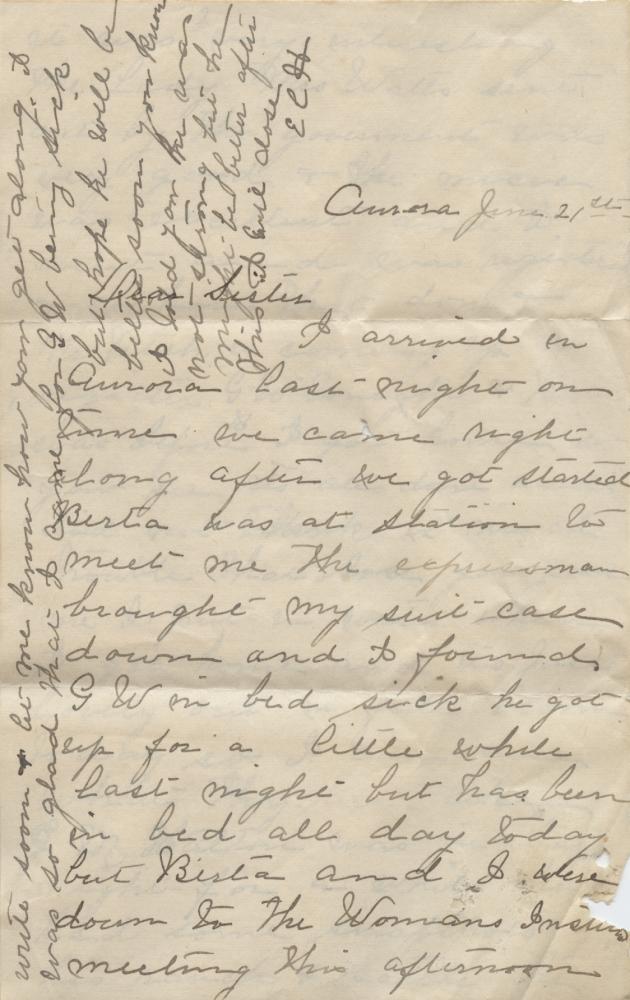 Aurora June 21st
Dear Sister
I arrived in
Aurora last night on
time we came right
along after we got started
Berta was at station to
meet me the expressman
brought my suit case
down and I found
G W in bed sick he got
up for a little while
last night but has been
in bed all day today
but Berta and I were
down to the Womans
meeting this afternoon
write soon & let me know how you get along I
was so glad that I came for G W being sick
but hope he will be
better soon you know
I told you he was
not strong but he
might be better after
this I will close
E C H